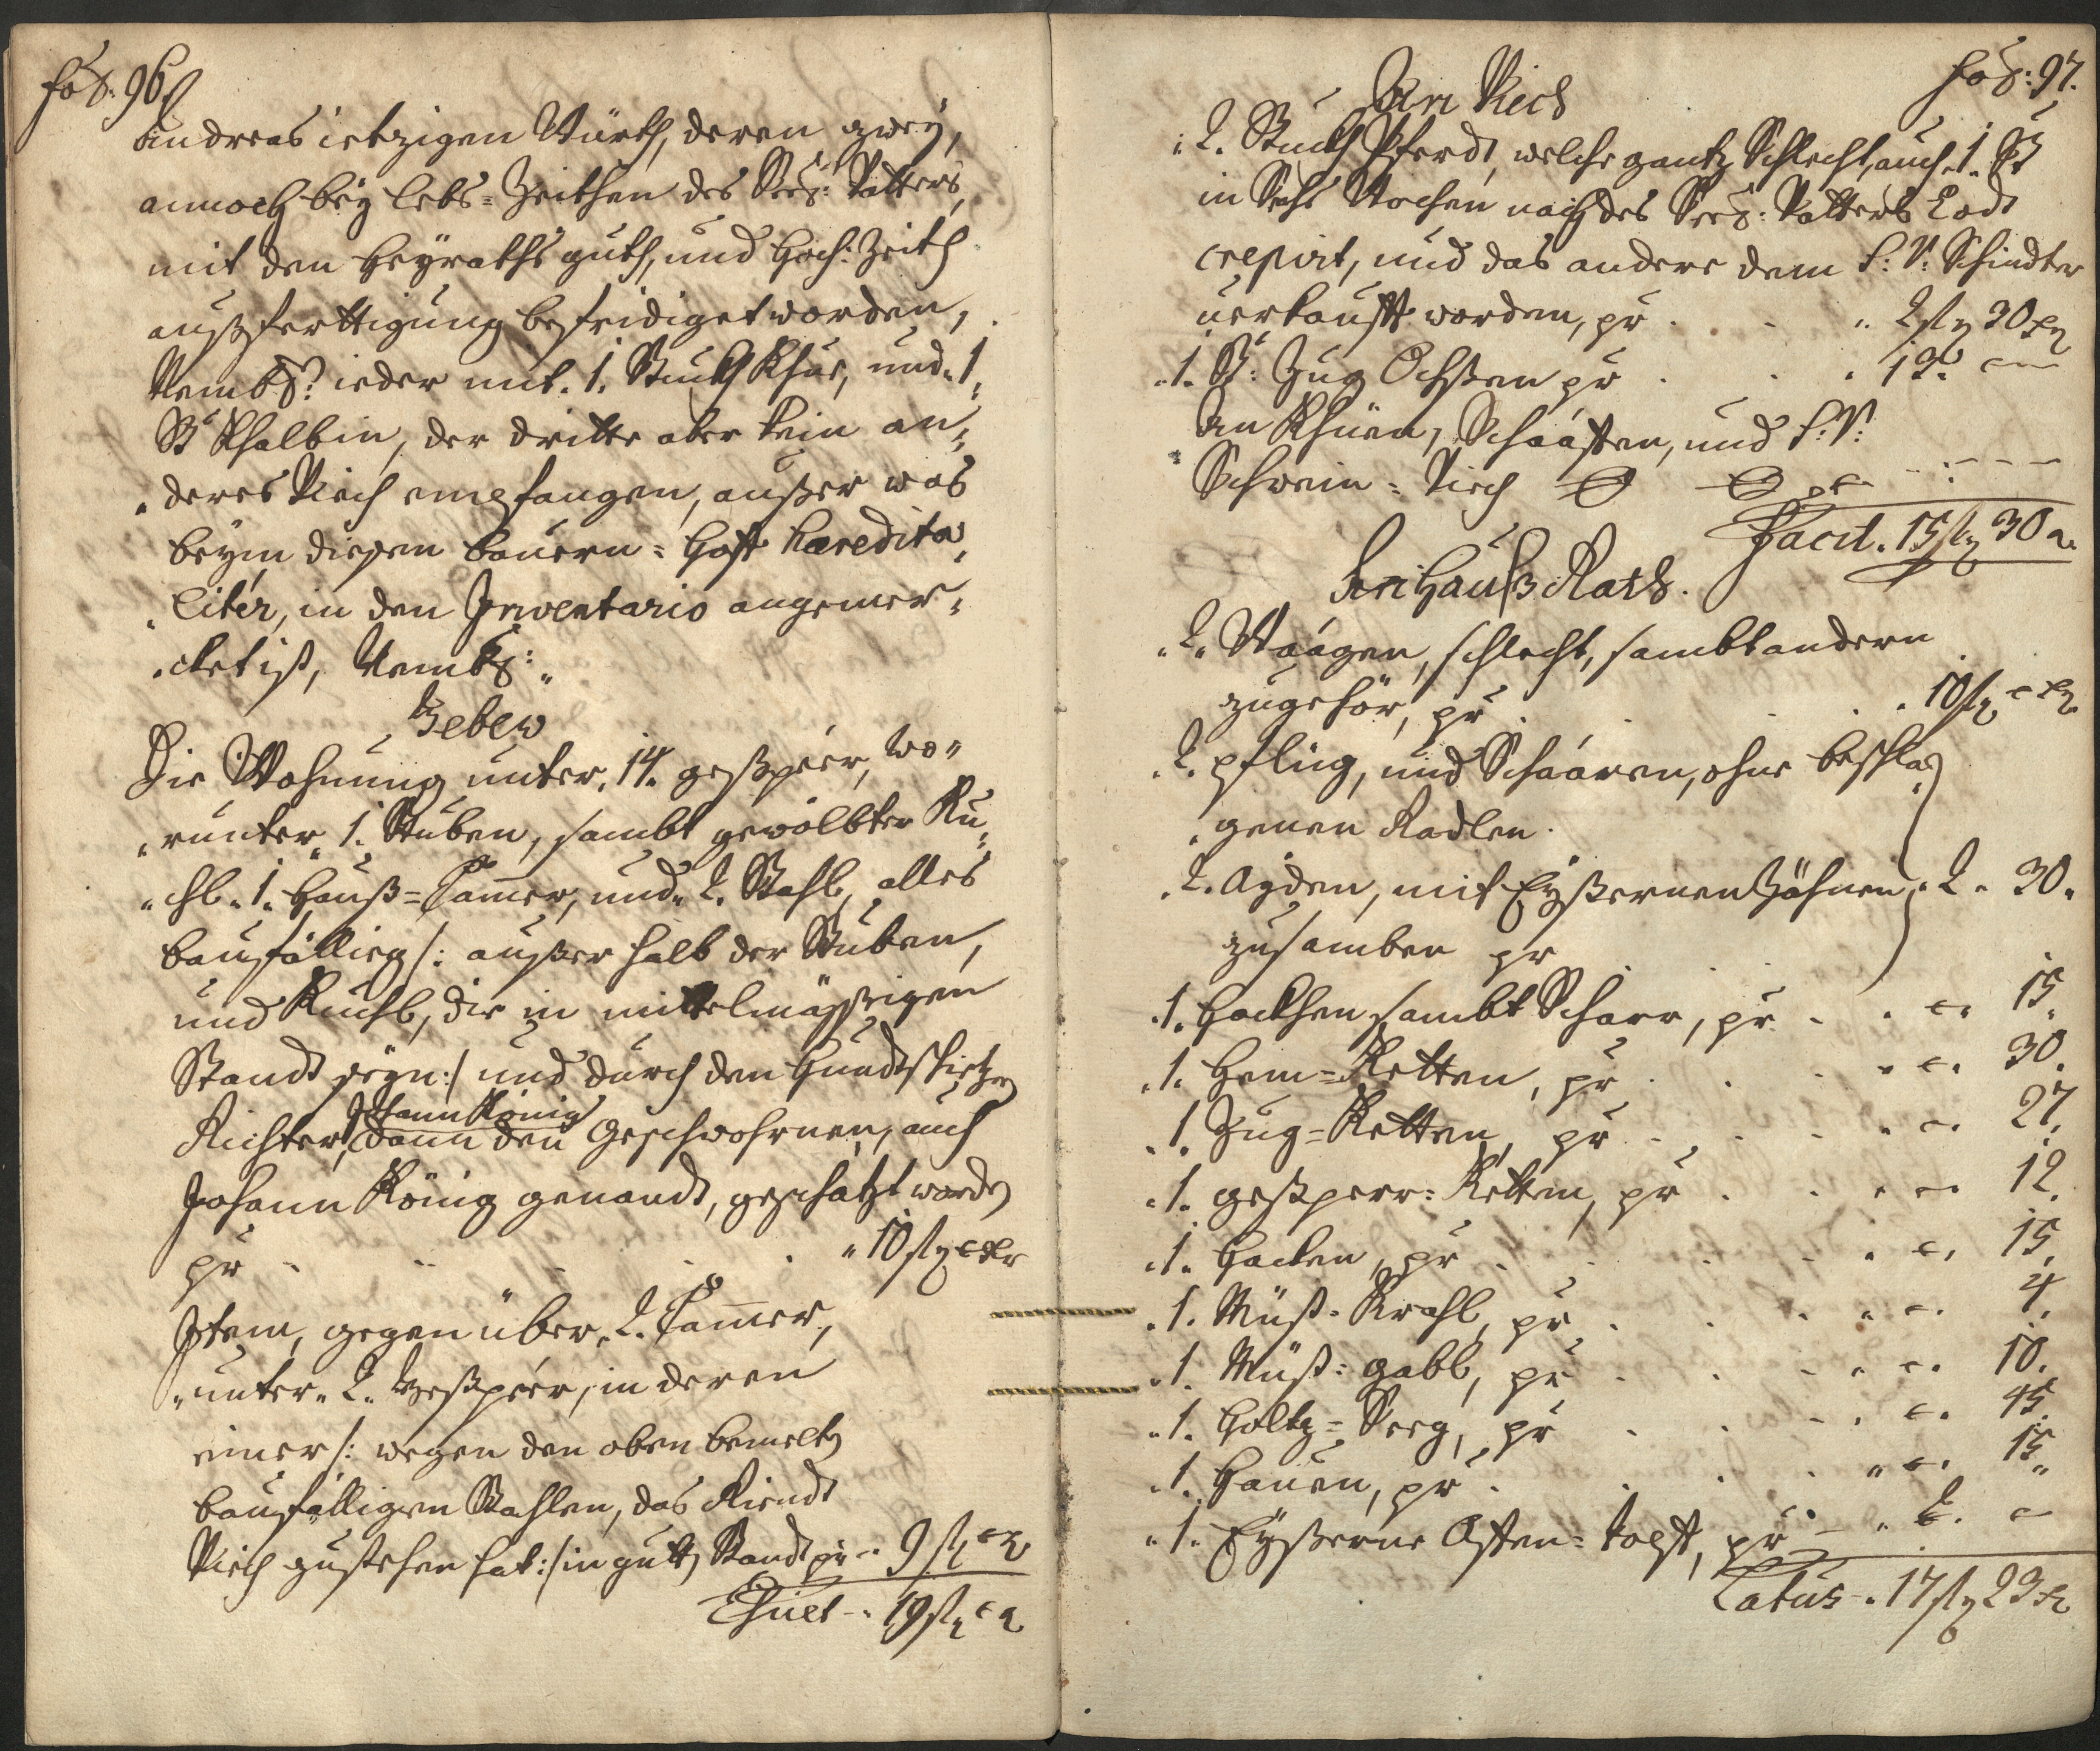 fol: 96.
Andreas ietzigen Würth, deren zweÿ,
annoch beÿ lebs-Zeithen des Seel: Vatters,
mit den Heÿraths guth, und Hoch: Zeith
außferttigung befridiget worden,
Nembl: ieder mit .1. Stuckh Khue, und .1.
St: Khalbin, der dritte aber kein an„
„deres Viech empfangen, außer was
beÿm diesen Bauern-Hoff haeredita„
„liter, in den Inventario angemer„
„cket ist, Nembl:
Gebew
Die Wohnung unter .14. gespéer, wo„
„runter .1. Stuben, sambt gewölbter Ku„
„chl .1. Hauß-Cam̅er, und .2. Stahl, alles
baufällig /: außer halb der Stuben,
und Kuchl, die in mittelmässigen
Standt seÿn :/ und durch den
Richter, Johann König dann den Geschwohrnen, auch
Johann König genandt, geschätzt worden
pr . . . . „ 10 fl „ xr
Item, gegen über .2. Cam̅er,
„unter .2. Gespéer, in deren
einer /: wegen den oben bemelten
baufälligen Stahlen, das Riendt
Viech zustehen hat :/ in gutten Standt pr „ 9 fl „ x
Thuet „ 19 fl „ x
fol: 97.
An Viech
.2. Stuckh Pferdt, welche gantz Schlecht, auch .1. St
in Sechs Wochen nach des Seel: Vatters Todt
crepirt, und das andere dem S: V: Schindter
verkaufft worden, pr . . „ 2 fl 30 xr
.1. St: Zug Ochssen pr . . . 13. —
An Khüen, Schaafften, und S: V:
Schwein-Viech
Facit . 15 fl 30 x.
An Hauß Rath.
.2. Waägen, schlecht, sambt andern
zugehör, pr . . . . 10 fl „ x
.2. pflüg, und Schaaren, ohne beschla„
„genen Radlen.
.2. Aÿden, mit Eÿssernen Zähnen „ 2 „ 30.
zusamben pr
.1. Hackhen sambt Schaar, pr . . „ 15.
.1. Hem-Ketten, pr . . . „ 30.
.1. Zug-Ketten, pr . . . „ 27.
.1. gesperr-Ketten, pr . . . „ 12.
.1. Hacken, pr . . . „ 15.
.1. Müst-Krahl, pr . . . „ 4.
.1. Müst-gabl, pr . . . „ 10.
.1. Holtz-Seeg, pr . . . „ 45.
.1. Hauen, pr . . . „ 15.
.1. Eÿsserne Offen-topff, pr „ 2. —
Latus . 17 fl 23 x